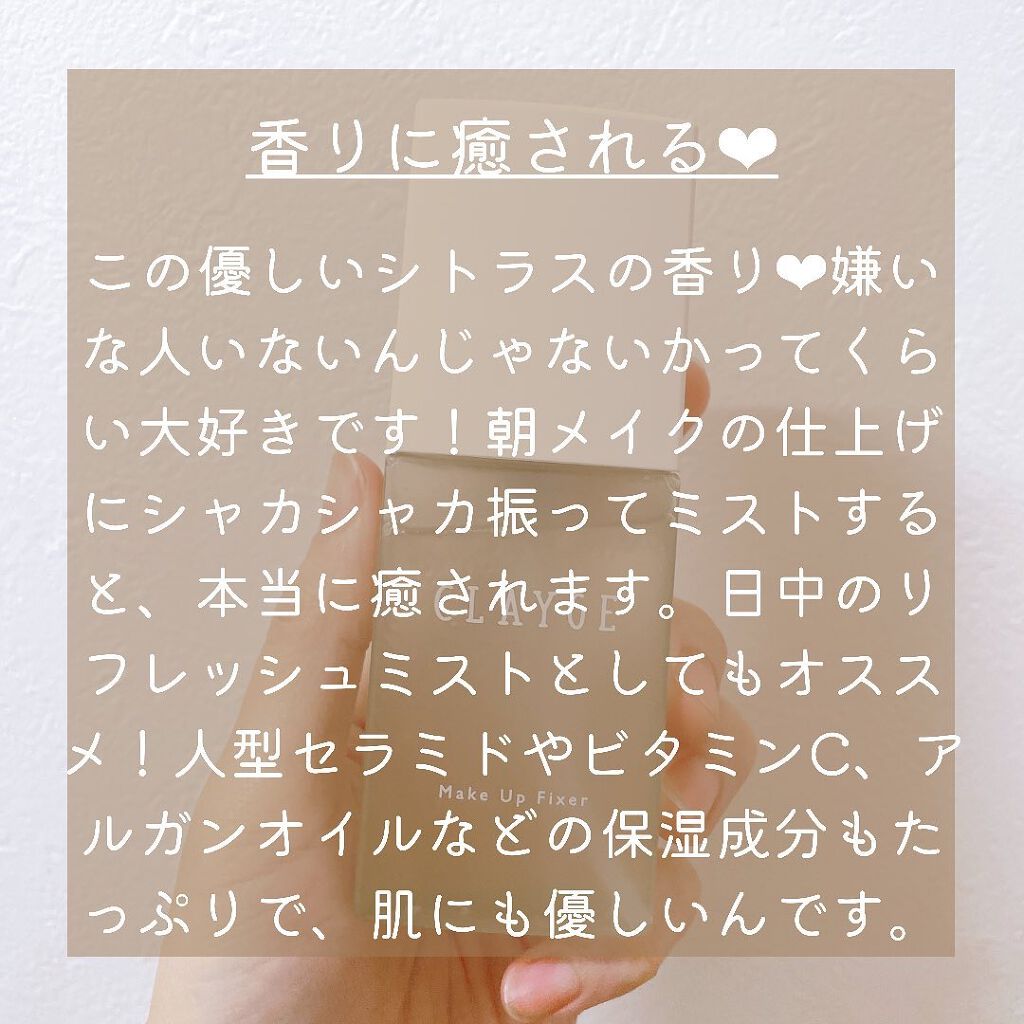 香りに癒される❤
この優しいシトラスの香り❤嫌い
な人いないんじゃないかってくら
い大好きです！朝メイクの仕上げ
にシャカシャカ振ってミストする
と、本当に癒されます。日中のリ
フレッシュミストとしてもオスス
メ！人型セラミドやビタミンC、ア
ルガンオイルなどの保湿成分もた
っぷりで、肌にも優しいんです。
CLAYGE
Make Up Fixer